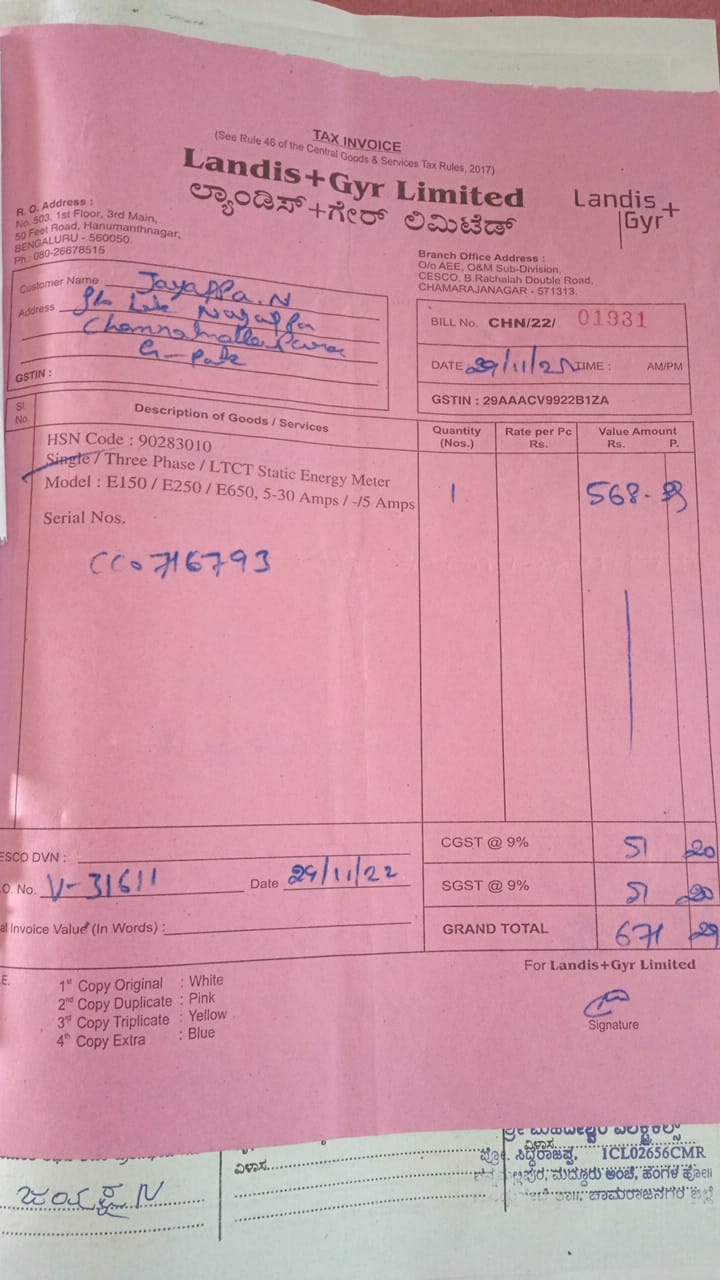 TAX INVOICE
(See Rule 46 of the Central Goods & Services Tax Rules, 2017)
Landis+Gyr Limited
ಲ್ಯಾಂಡಿಸ್+ಗೇರ್ ಲಿಮಿಟೆಡ್
Landis+
Gyr
R. O. Address :
No. 503, 1st Floor, 3rd Main,
50 Feet Road, Hanumanthnagar,
BENGALURU - 560050.
Ph.: 080-26678515
Branch Office Address :
O/o AEE, O&M Sub-Division,
CESCO, B.Rachaiah Double Road,
CHAMARAJANAGAR - 571313.
Customer Name Jayappa.N
Address S/o Late Nagappa
G-Pete
GSTIN :
BILL No. CHN/22/ 01931
DATE 29/11/22 TIME : AM/PM
GSTIN : 29AAACV9922B1ZA
Sl. No. Description of Goods / Services Quantity (Nos.) Rate per Pc Rs. Value Amount Rs. P.
HSN Code : 90283010
Single / Three Phase / LTCT Static Energy Meter
Model : E150 / E250 / E650, 5-30 Amps / -/5 Amps 1 568-
Serial Nos.
CC0716793
CGST @ 9% 51 20
SGST @ 9% 51 20
GRAND TOTAL 671 29
ESCO DVN :
O. No. V-31611 Date 29/11/22
al Invoice Value (In Words) :
For Landis+Gyr Limited
E.
1st Copy Original : White
2nd Copy Duplicate : Pink
3rd Copy Triplicate : Yellow
4th Copy Extra : Blue
Signature
ವಿಳಾಸ
ವಿಳಾಸ
ಪ್ರೋ. ಸಿದ್ದರಾಜಪ್ಪ, 1CL02656CMR
ಮದ್ದೂರು ಅಂಚೆ, ಹಂಗಳ ಹೋ||
ಚಾಮರಾಜನಗರ ಜಿಲ್ಲೆ